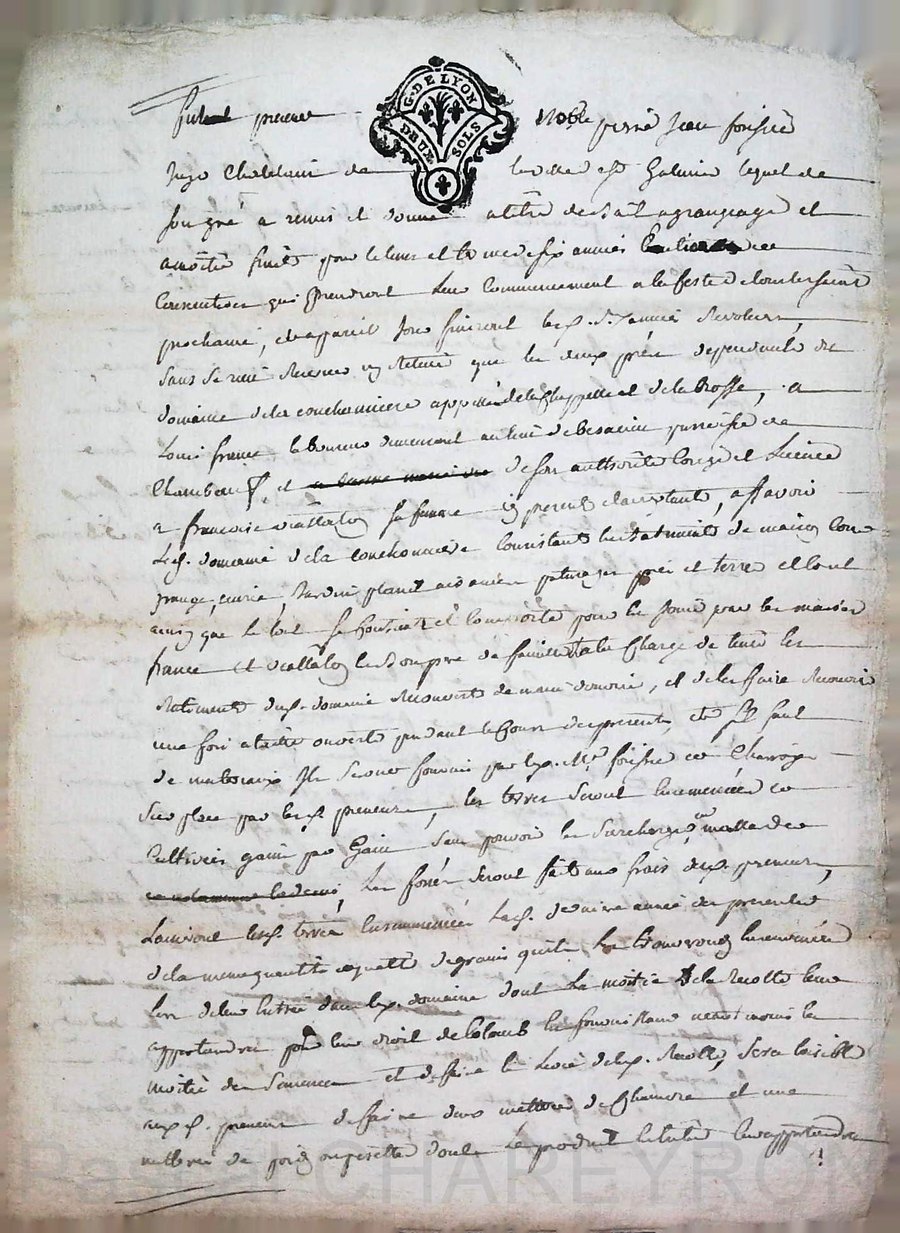 G. DE LYON
DEUX SOLS
Fut present Noble pierre Jean forissier
Juge Chatelain de la ville st Galmier lequel de
son gré a remis et donné a titre de bail a grangeage et
a moitié fruits pour le tems et terme de six années
consecutives qui prendront leur commencement a la feste de toussaints
prochaine, et a pareil jour finiront les d. six années revolues,
sans se rien reserver ny retenir que les deux prés dependants du
domaine de la conchonniere appellés de la Chappelle et de la Brosse, a
Louis france laboureur demeurant au lieu de besacieu parroisse de
Chambeuf, et de son authorité congé et Licence
a francoise viallaton sa femme icy presents et acceptants, assavoir
Led. domaine de la conchonniere Consistant en batiments de maison Cour
grange, ecurie, Jardin plants pres et terres et tout
ainsy que le tout se Contient et comporte pour en jouir par les mariés
france et viallaton en bon pere de famille a la Charge de tenir les
batiments dud. domaine recouverts de main d'ouvrier, et de les faire recouvrir
une fois a taille ouverte pendant le Cours des presentes, et s'il faut
de materiaux Ils seront fournis par led. Mr forissier et Charroyés
sur place par lesd. preneurs, les terres seront ensemencées et
Cultivées gain par Gain sans pouvoir les surcharger
Les fossés seront faits aux frais desd. preneurs,
Laisseront lesd. terres Ensemencées la d. derniere année des presentes
de la meme quantité et qualité de grains qu'ils les trouveront ensemencées
lors de leur Entrée dans led. domaine dont la moitié de la recolte leur
appartiendra pour leur droit de Colons en fournissant neantmoins la
moitié des semences et de faire la levée de lad. recolte, sera loisible
auxd. preneurs de faire deux metteres de Chanvre et une
metterée de pois ou pesettes dont le produit leur appartiendra
Pascal CHAREYRON